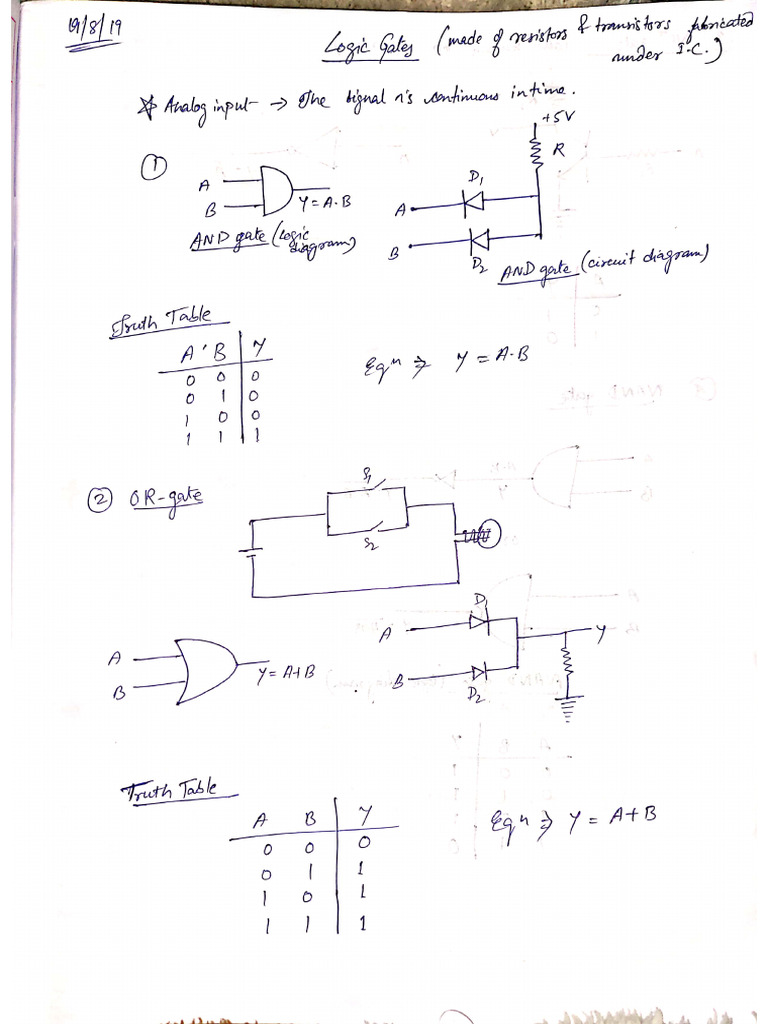 19/8/19
Logic Gates (made of resistors & transistors fabricated
under I.C.)
* Analog input → The signal is continuous in time.
+5V
R
①
A
B
Y = A.B
AND gate (logic
diagram)
D1
A
B
D2
AND gate (circuit diagram)
Truth Table
A B Y
0 0 0
0 1 0
1 0 0
1 1 1
Eqn ⇒ Y = A.B
② OR-gate
S1
S2
A
B
Y = A+B
D1
A
B
D2
Y
Truth Table
A B Y
0 0 0
0 1 1
1 0 1
1 1 1
Eqn ⇒ Y = A+B